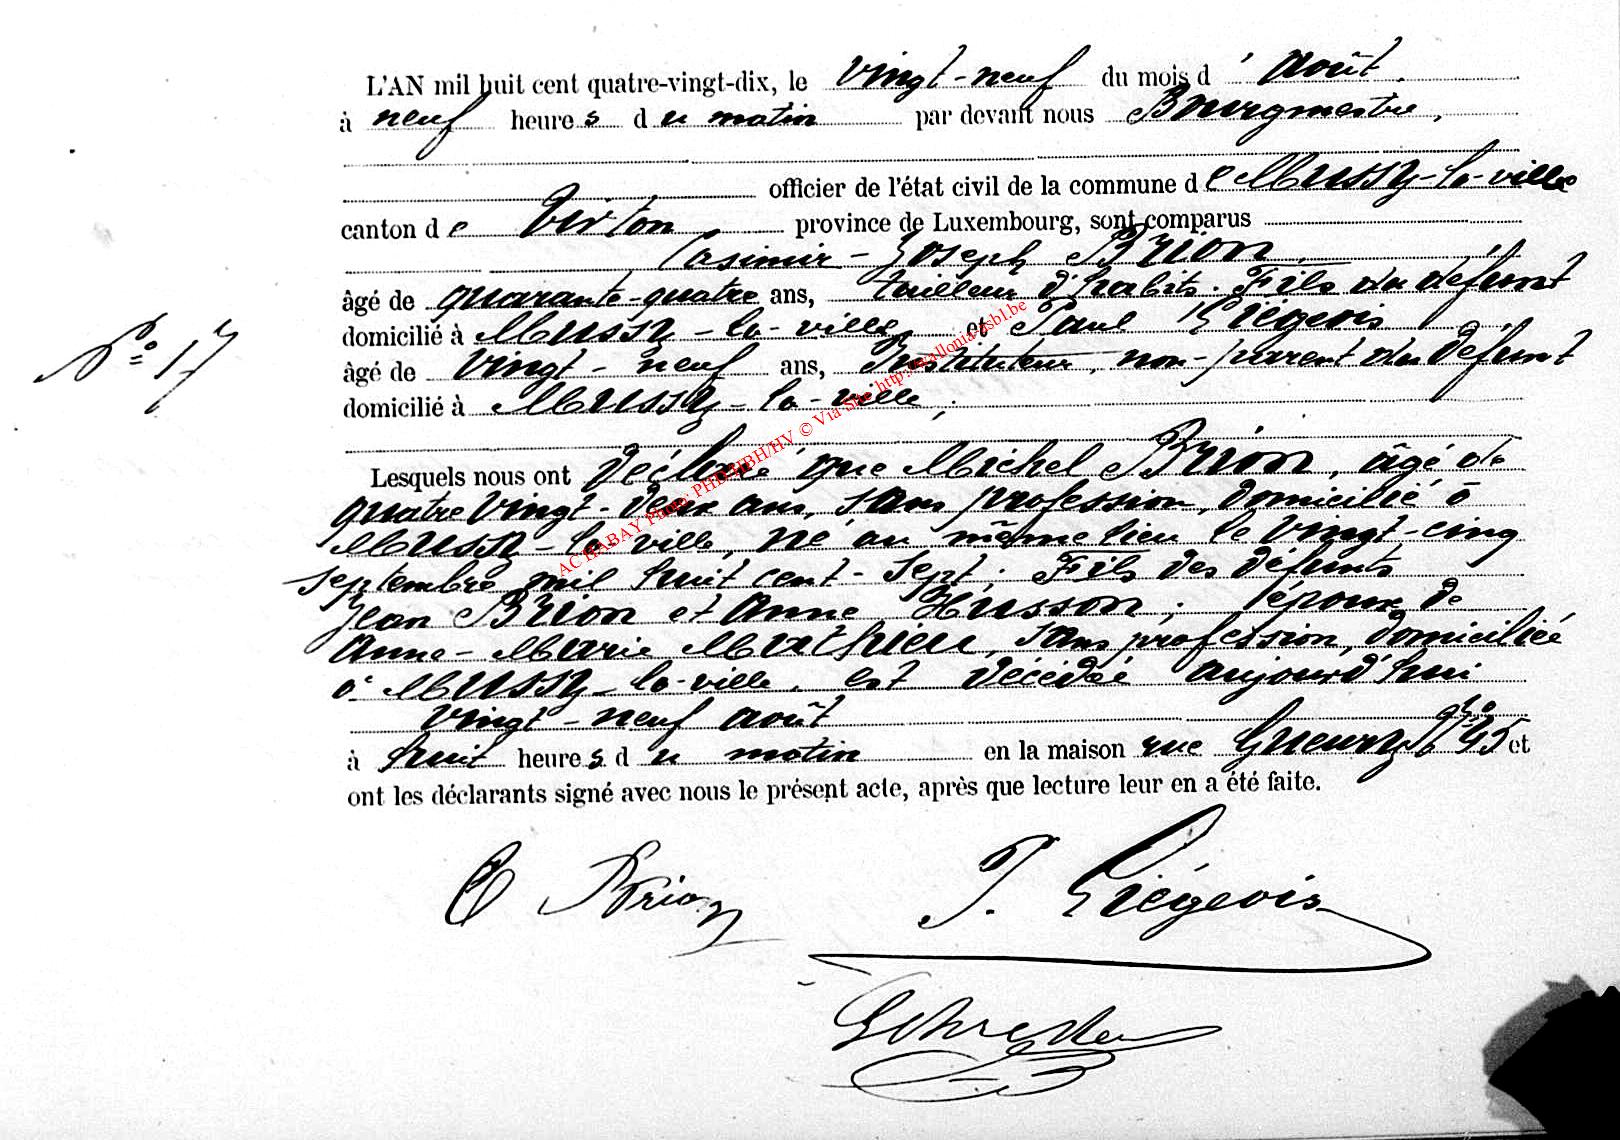 L'AN mil huit cent quatre-vingt-dix, le vingt-neuf du mois d' Août.
à neuf heures du matin par devant nous Bourgmestre,
officier de l'état civil de la commune de Mussy-la-ville
canton de Virton province de Luxembourg, sont comparus
Casimir-Joseph Brion,
âgé de quarante-quatre ans, tailleur d'habits. Fils du défunt
domicilié à Mussy-la-ville, et Paul Liégeois
N° 17
âgé de vingt-neuf ans, Instituteur, non-parent du défunt
domicilié à Mussy-la-ville,
Lesquels nous ont déclaré que Michel Brion, âgé de
quatre vingt-deux ans, sans profession, domicilié à
Mussy-la-ville, né au même lieu le vingt-cinq
septembre mil huit cent-sept; Fils des défunts
Jean Brion et Anne Husson; époux de
Anne-Marie Mathieu, sans profession, domiciliée
à Mussy-la-ville, est décédé aujourd'hui
vingt-neuf août
à huit heures du matin en la maison rue 45 et
ont les déclarants signé avec nous le présent acte, après que lecture leur en a été faite.
C Brion P. Liégeois
AC HABAY Photo: PHD/HBH/HV © Via Site http://wallonia-asbl.be